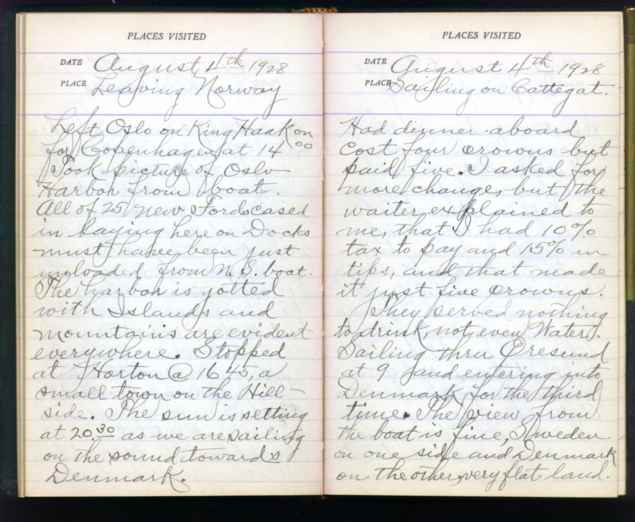 PLACES VISITED
DATE August 4th 1928
PLACE Leaving Norway
Left Oslo on King Haakon
for Copenhagen at 14 00
Took picture of Oslo
Harbor from boat.
All of 25 new Fords cased
in laying here on Docks
must have been just
unloaded from N.S. boat.
The harbor is jotted
with Islands and
mountains are evident
everywhere. Stopped
at Horton @ 16 45, a
small town on the Hill-
side. The sun is setting
at 20 30 as we are sailing
on the sound towards
Denmark.
PLACES VISITED
DATE August 4th 1928
PLACE Sailing on Cattegat.
Had dinner aboard
cost four crowns but
paid five. I asked for
more change, but the
waiter explained to
me, that I had 10%
tax to pay and 15% in
tips, and that made
it just five crowns.
They served nothing
to drink, not even Water.
Sailing thru Oresund
at 9 and entering into
Denmark for the third
time. The view from
the boat is fine, Sweden
on one side and Denmark
on the other, very flat land.